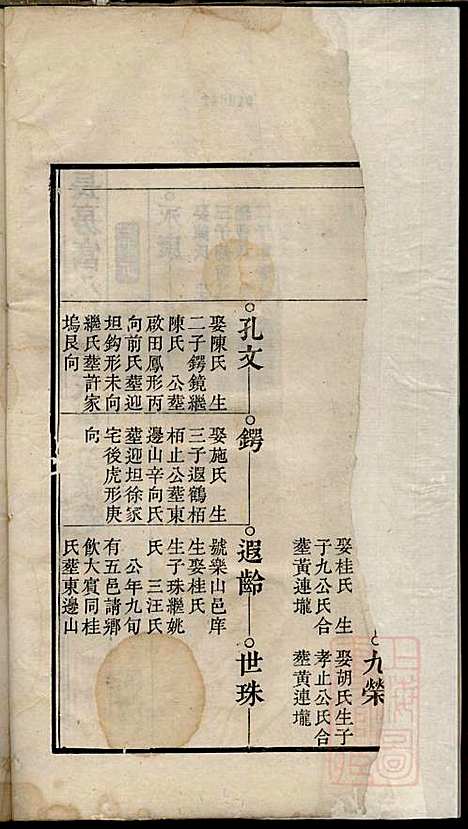 娶桂氏 生
子九公氏合
塟黃連壠
九榮
娶胡氏生子
孝止公氏合
塟黃連壠
孔文
娶陳氏 生
二子鍔鏡繼
陳氏 公塟
啟田鳳形丙
向前氏塟迎
坦鈎形未向
繼氏塟許家
塢艮向
鍔
娶施氏 生
三子遐鶴栢
栢止公塟東
邊山辛向氏
塟迎坦徐家
宅後虎形庚
向
遐齡
號樂山邑庠
生娶桂氏
生子珠繼姚
氏 三汪氏
公年九旬
有五邑請鄉
飲大賓同桂
氏塟東邊山
世珠